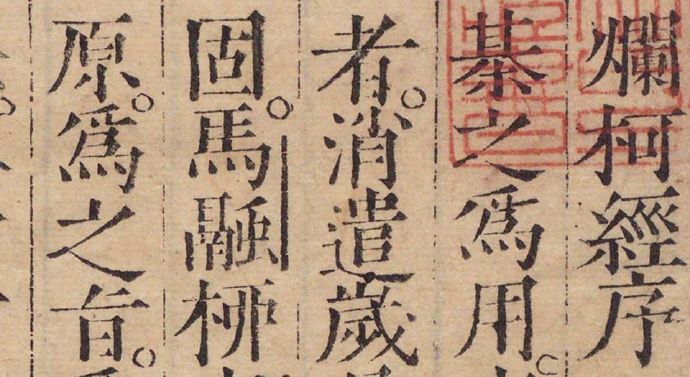 爛柯經序
棊之爲用。
者。消遣歲
固。馬融栁
原。爲之旨。